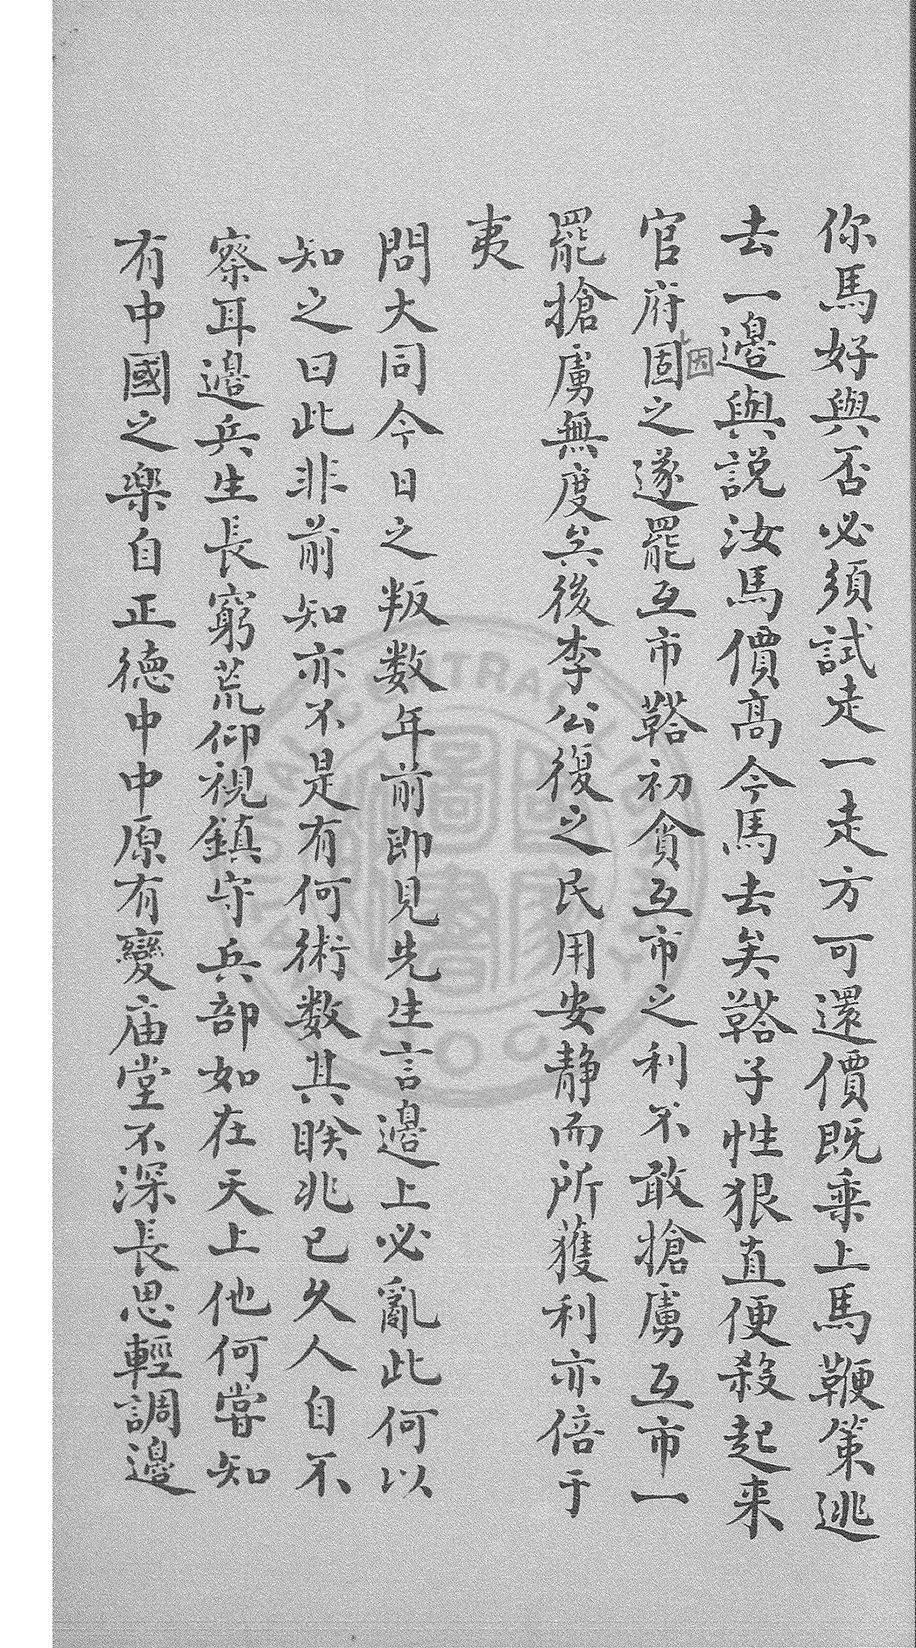 你馬好與否必須試走一走方可還價既乘上馬鞭策逃
去一邊與説汝馬價高今馬去矣鞳子性狠直便殺起来
官府固之遂罷互市鞳初貧互市之利不敢搶虜互市一
因
罷搶虜無度矣後李公復之民用安静而所獲利亦倍于
夷
問大同今日之叛数年前即見先生言邉上必亂此何以
知之曰此非前知亦不是有何術数其睽兆已久人自不
察耳邉兵生長窮荒仰視鎮守兵部如在天上他何嘗知
有中國之樂自正徳中中原有變庙堂不深長思輕調邉
NATIONAL CENTRAL LIBRARY
國家圖書